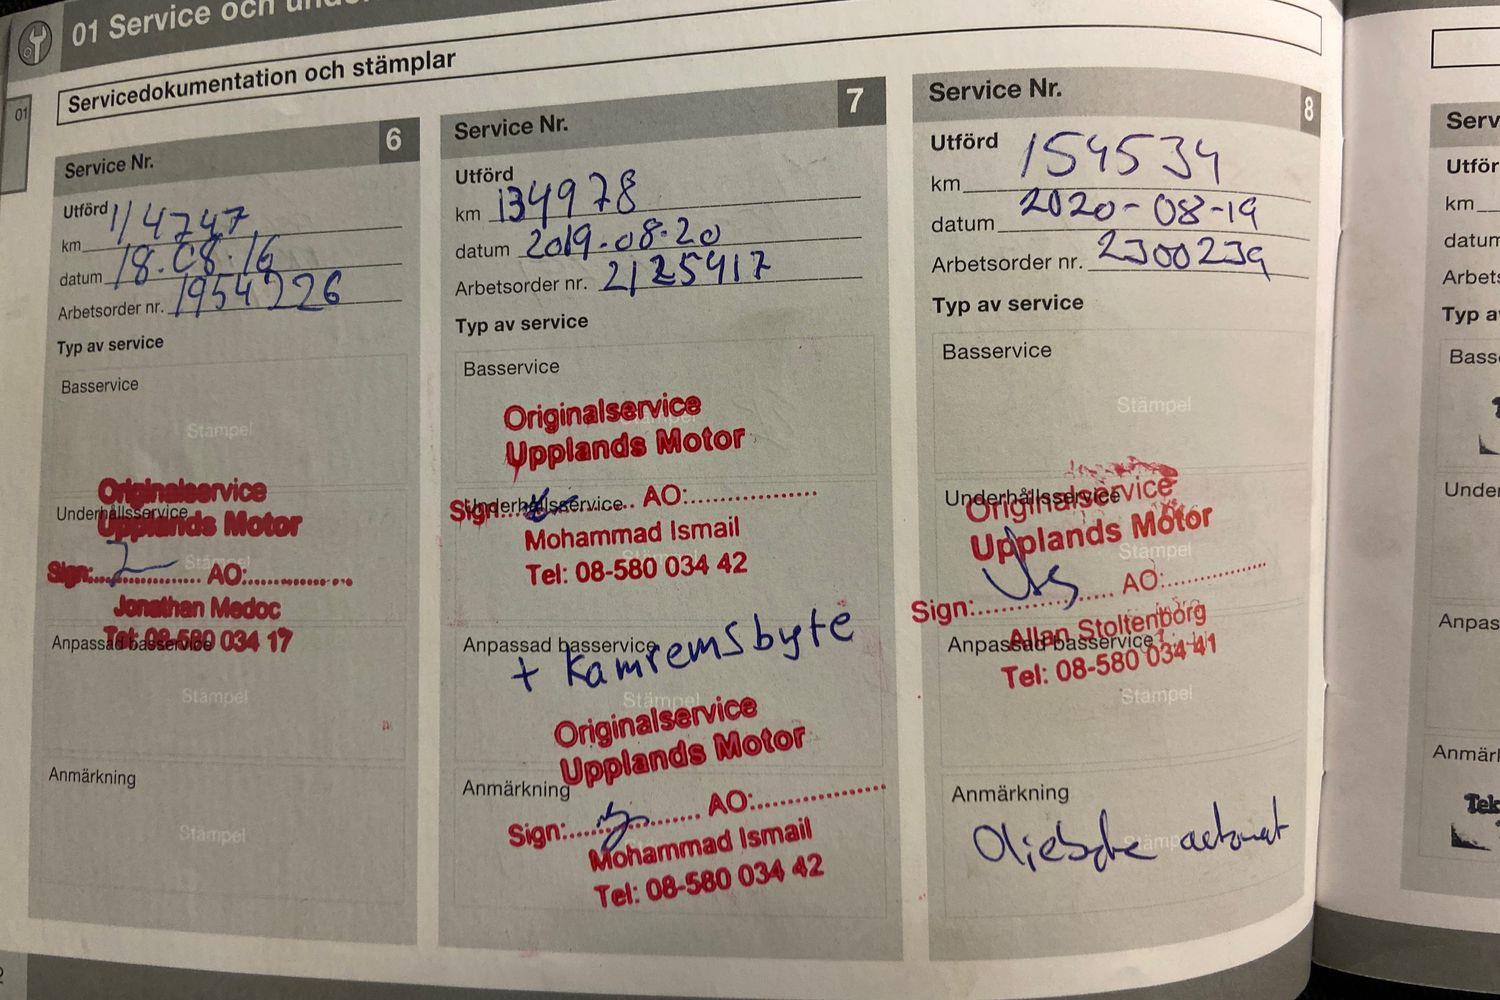 01 Service och
01
Servicedokumentation och stämplar
Service Nr. 6
Utförd
km 114747
datum 18.08.16
Arbetsorder nr. 1954226
Typ av service
Basservice
Stämpel
Originalservice
Underhållsservice
Upplands Motor
Stämpel
Sign:.................. AO:..................
Jonathan Medoc
Tel: 08-580 034 17
Anpassad basservice
Stämpel
Anmärkning
Stämpel
Service Nr. 7
Utförd
km 134978
datum 2019-08-20
Arbetsorder nr. 2125417
Typ av service
Basservice
Stämpel
Originalservice
Upplands Motor
Underhållsservice
Sign:.................. AO:..................
Mohammad Ismail
Stämpel
Tel: 08-580 034 42
Anpassad basservice
+ Kamremsbyte
Stämpel
Originalservice
Upplands Motor
Anmärkning
Sign:.................. AO:..................
Mohammad Ismail
Tel: 08-580 034 42
Service Nr. 8
Utförd
km 154534
datum 2020-08-19
Arbetsorder nr. 2300239
Typ av service
Basservice
Stämpel
Underhållsservice
Originalservice
Upplands Motor
Stämpel
Sign:.................. AO:..................
Allan Stoltenborg
Anpassad basservice
Tel: 08-580 034 41
Stämpel
Anmärkning
Stämpel
Oljebyte automat
Serv
Utför
km
datum
Arbets
Typ a
Bass
Under
Anpas
Anmärk
Tek